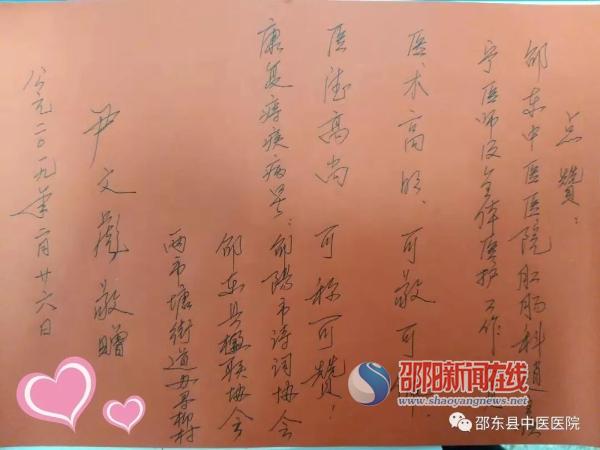 点赞：
邵东中医医院肛肠科
宁医师及全体医护工作
医术高明、可敬可
医德高尚 可称可赞！
康复痔疾病号：邵阳市诗词协会
邵东县楹联协会
两市塘街道柳村
尹文彪敬赠
公元二〇一九年二月廿六日
邵阳新闻在线
www.shaoyangnews.net
邵东县中医医院